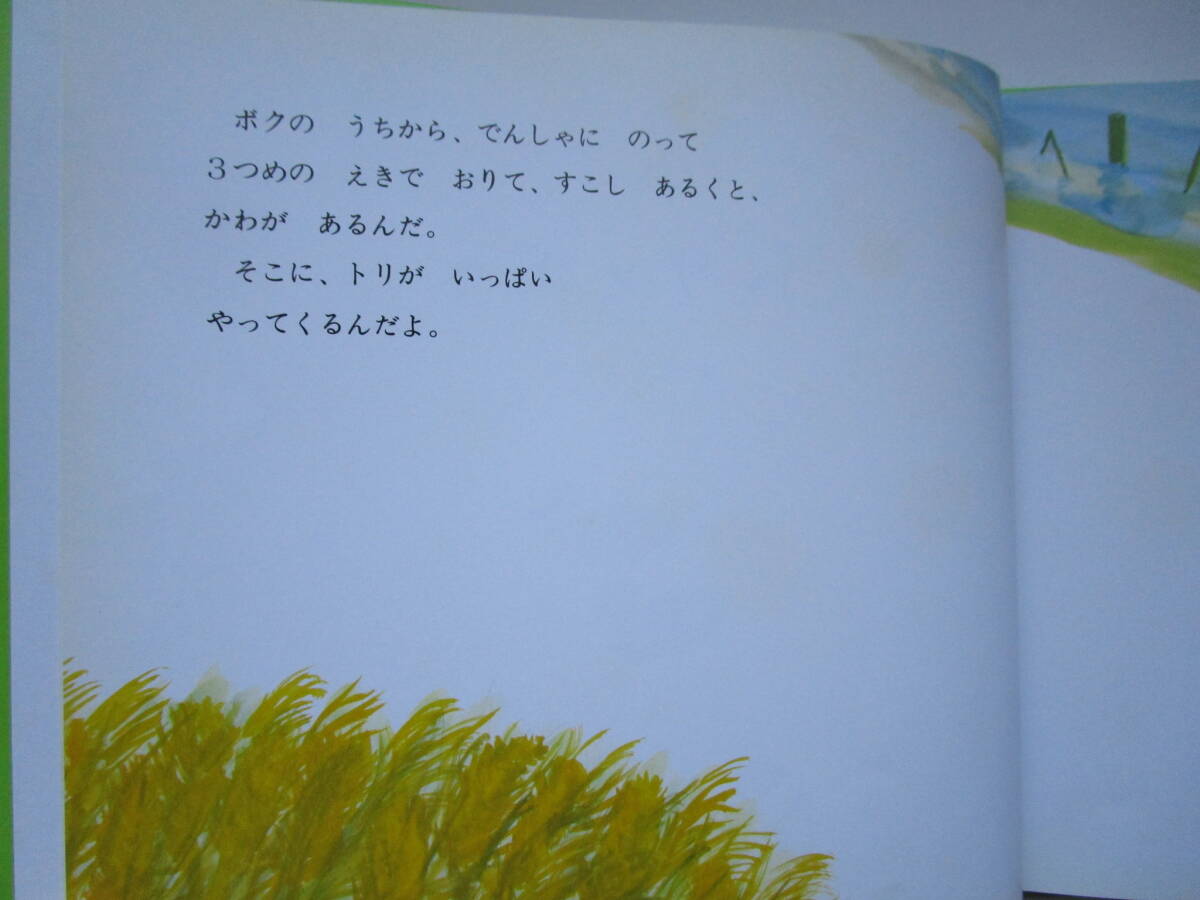 ボクの　うちから、でんしゃに　のって
３つめの　えきで　おりて、すこし　あるくと、
かわが　あるんだ。
そこに、トリが　いっぱい
やってくるんだよ。